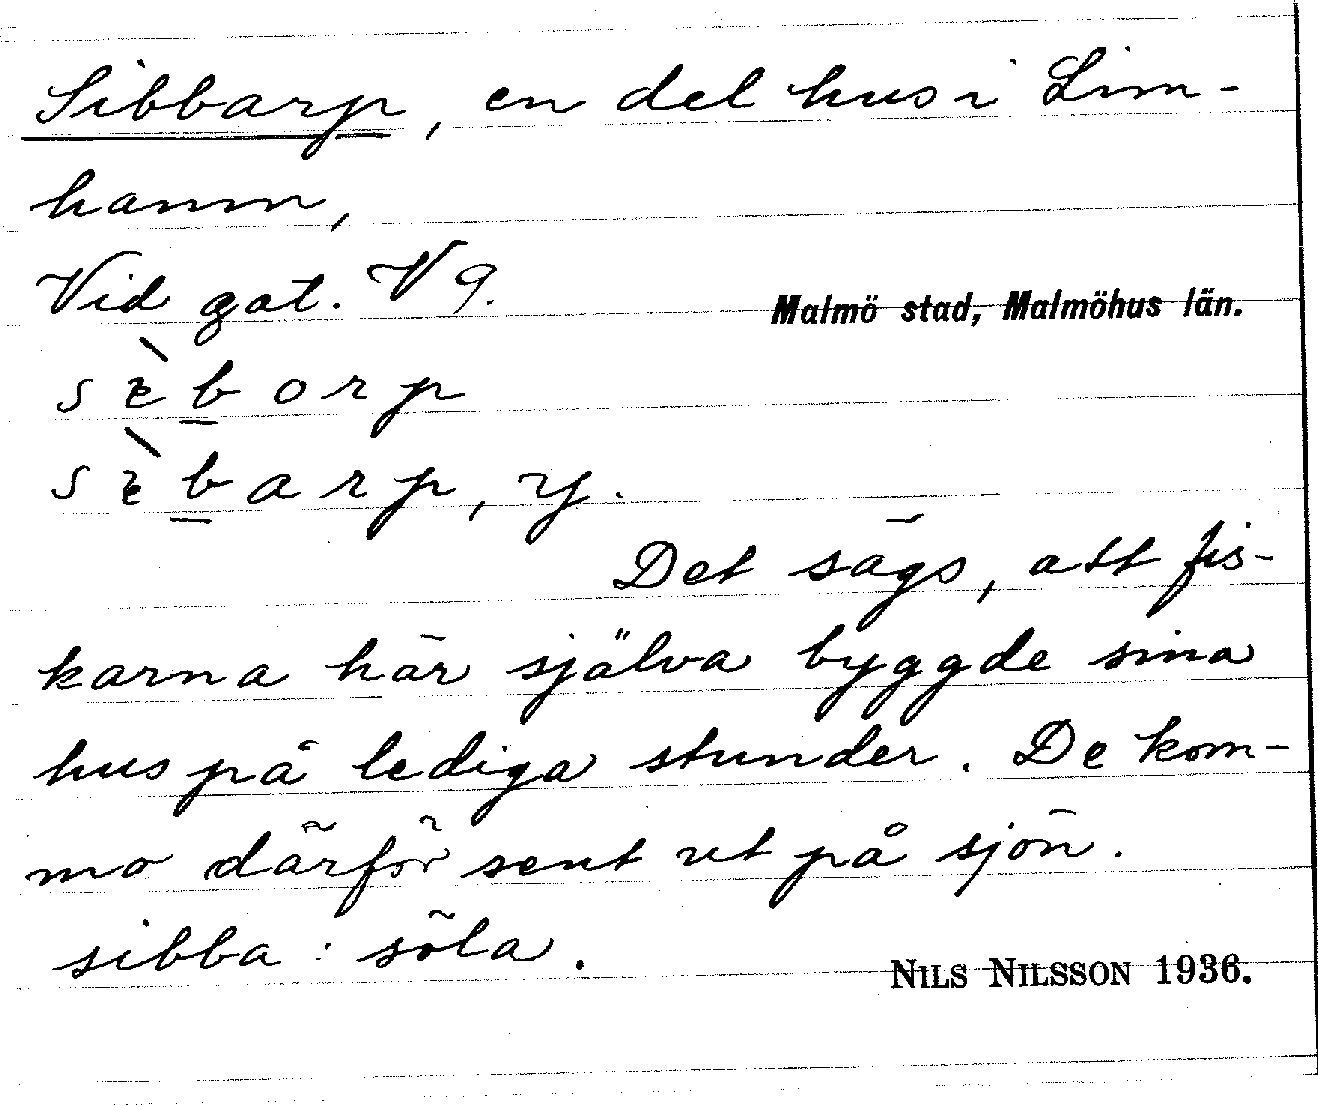 Sibbarp, en del hus i Lim-
hamn,
Vid gat. V 9.
Malmö stad, Malmöhus län.
sèborp
sèbarp, y.
Det sägs, att fis-
karna här själva byggde sina
hus på lediga stunder. De kom-
mo därför sent ut på sjön.
sibba : söla.
NILS NILSSON 1936.